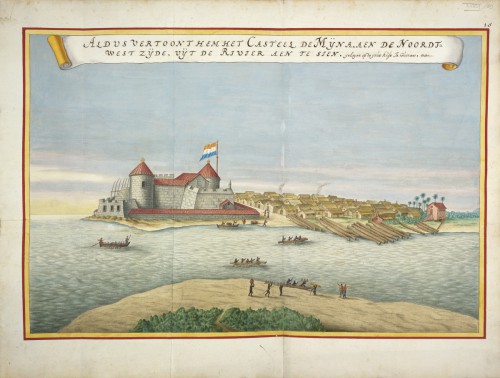 ALDUS VERTOONT HEM HET CASTEEL DE MŸNA AEN DE NOORDT-
WEST ZŸDE, UŸT DE RIVIER AEN TE SIEN,